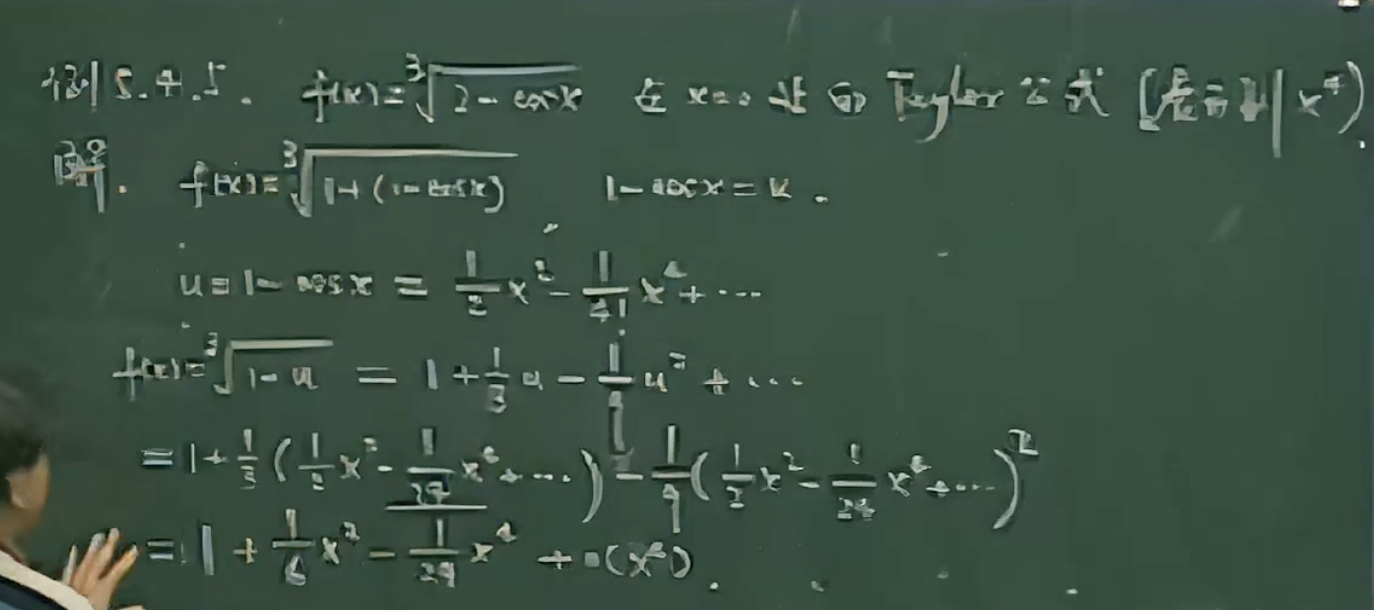 例5.4.5. f(x)=∛(2-cosx) 在 x=0 处的 Taylor 公式 (展开到 x⁴).
解. f(x)=∛(1+(1-cosx)) 1-cosx=u.
u=1-cosx = 1/2 x² - 1/4! x⁴ + ⋯
f(x)=∛(1-u) = 1 + 1/3 u - 1/9 u² + ⋯
=1+ 1/3 (1/2 x² - 1/24 x⁴ + ⋯) - 1/9 (1/2 x² - 1/24 x⁴ + ⋯)²
=1 + 1/6 x² - 1/24 x⁴ + o(x⁴).